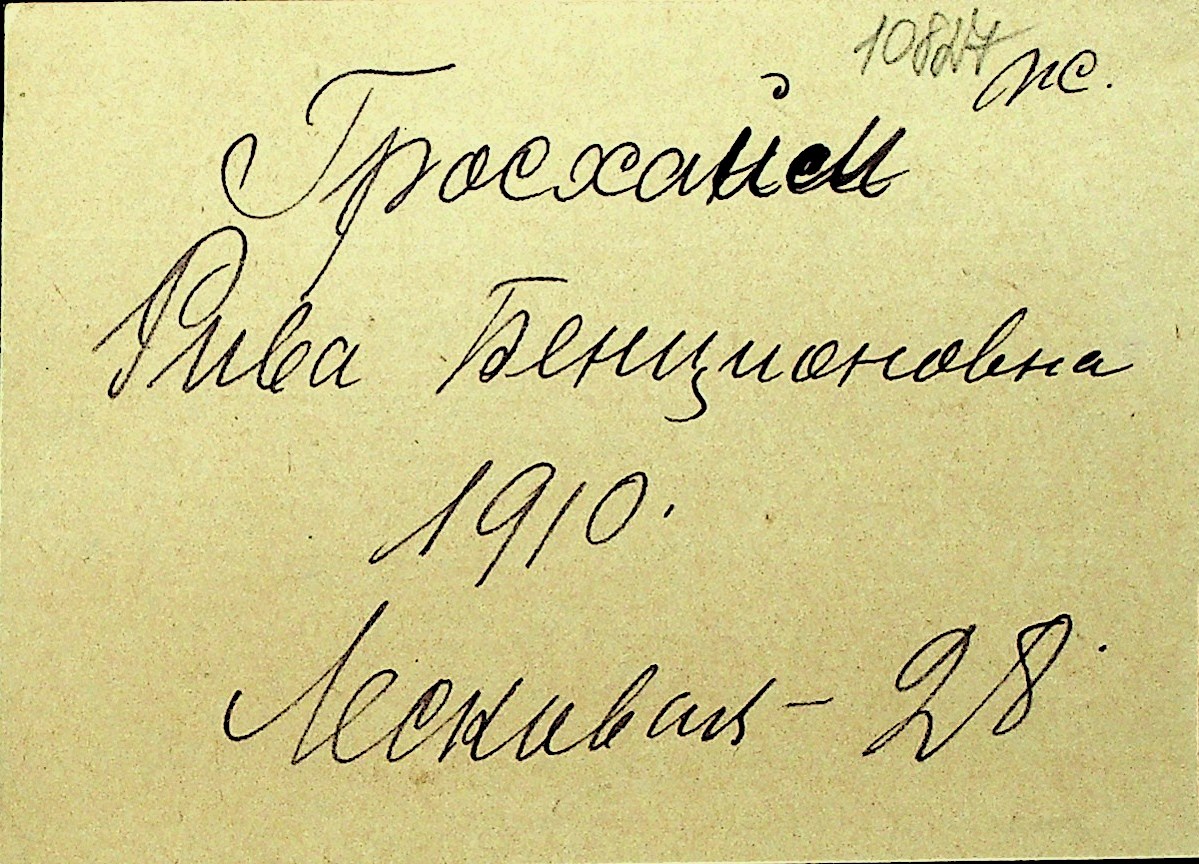 10827 ж.
Гросхайм
Рива Бенционовна
1910.
Лесковая - 28.